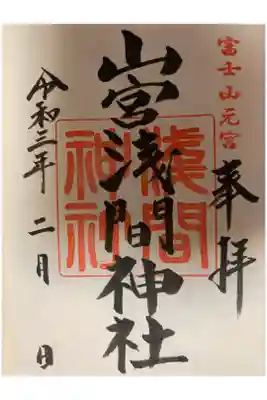 富士山元宮
奉拝
山宮浅間神社
淺間
神社
令和三年 二月 日